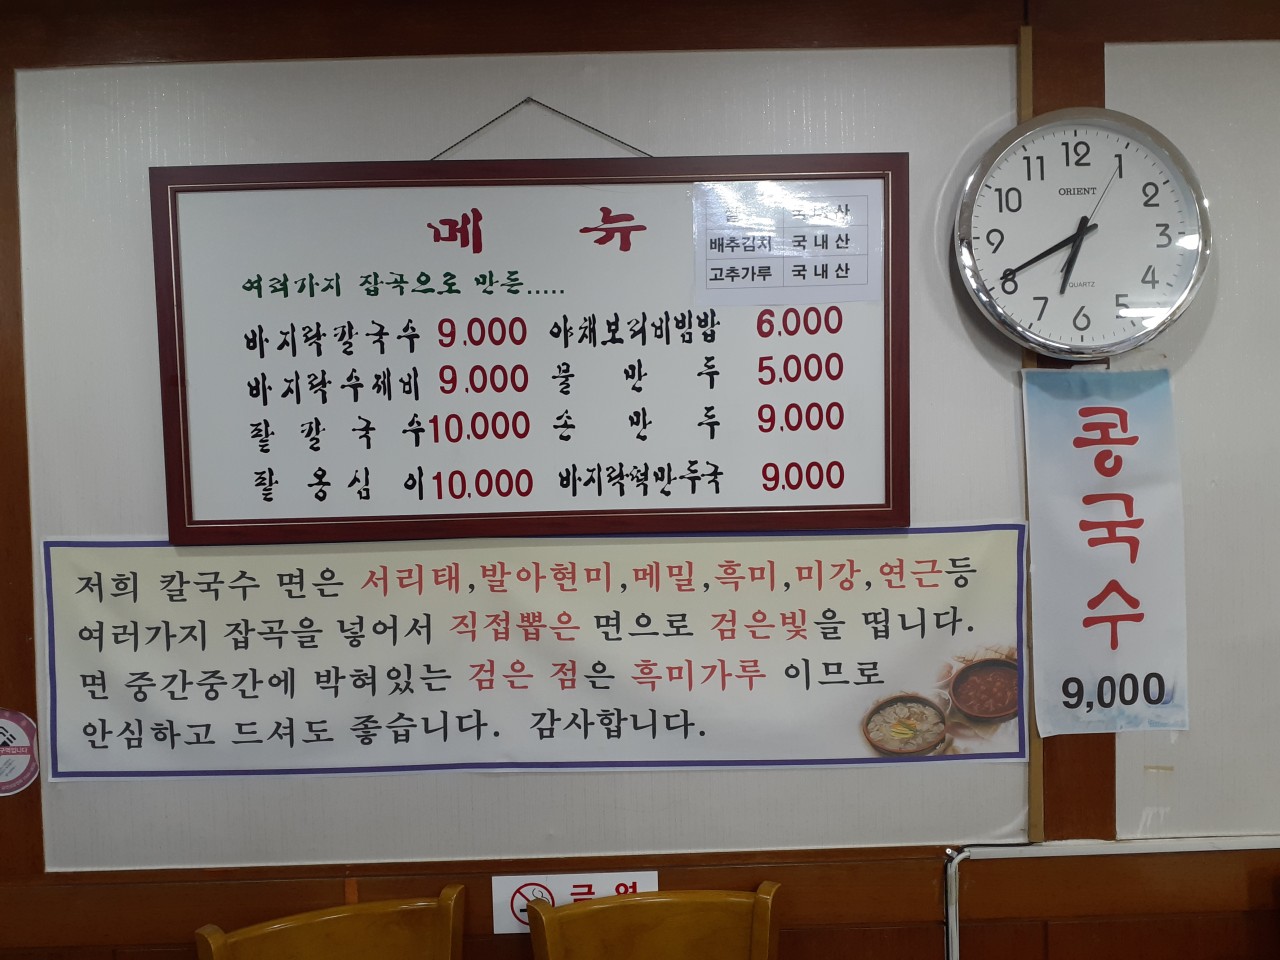 메 뉴
국 내 산
배추김치 국 내 산
고추가루 국 내 산
여러가지 잡곡으로 만든.....
바지락칼국수 9,000 야채보리비빔밥 6,000
바지락수제비 9,000 물 만 두 5,000
팥 칼 국 수 10,000 손 만 두 9,000
팥 옹 심 이 10,000 바지락떡만두국 9,000
저희 칼국수 면은 서리태,발아현미,메밀,흑미,미강,연근등
여러가지 잡곡을 넣어서 직접뽑은 면으로 검은빛을 띱니다.
면 중간중간에 박혀있는 검은 점은 흑미가루 이므로
안심하고 드셔도 좋습니다. 감사합니다.
12 1 2 3 4 5 6 7 8 9 10 11
ORIENT
QUARTZ
콩국수
9,000
금 연